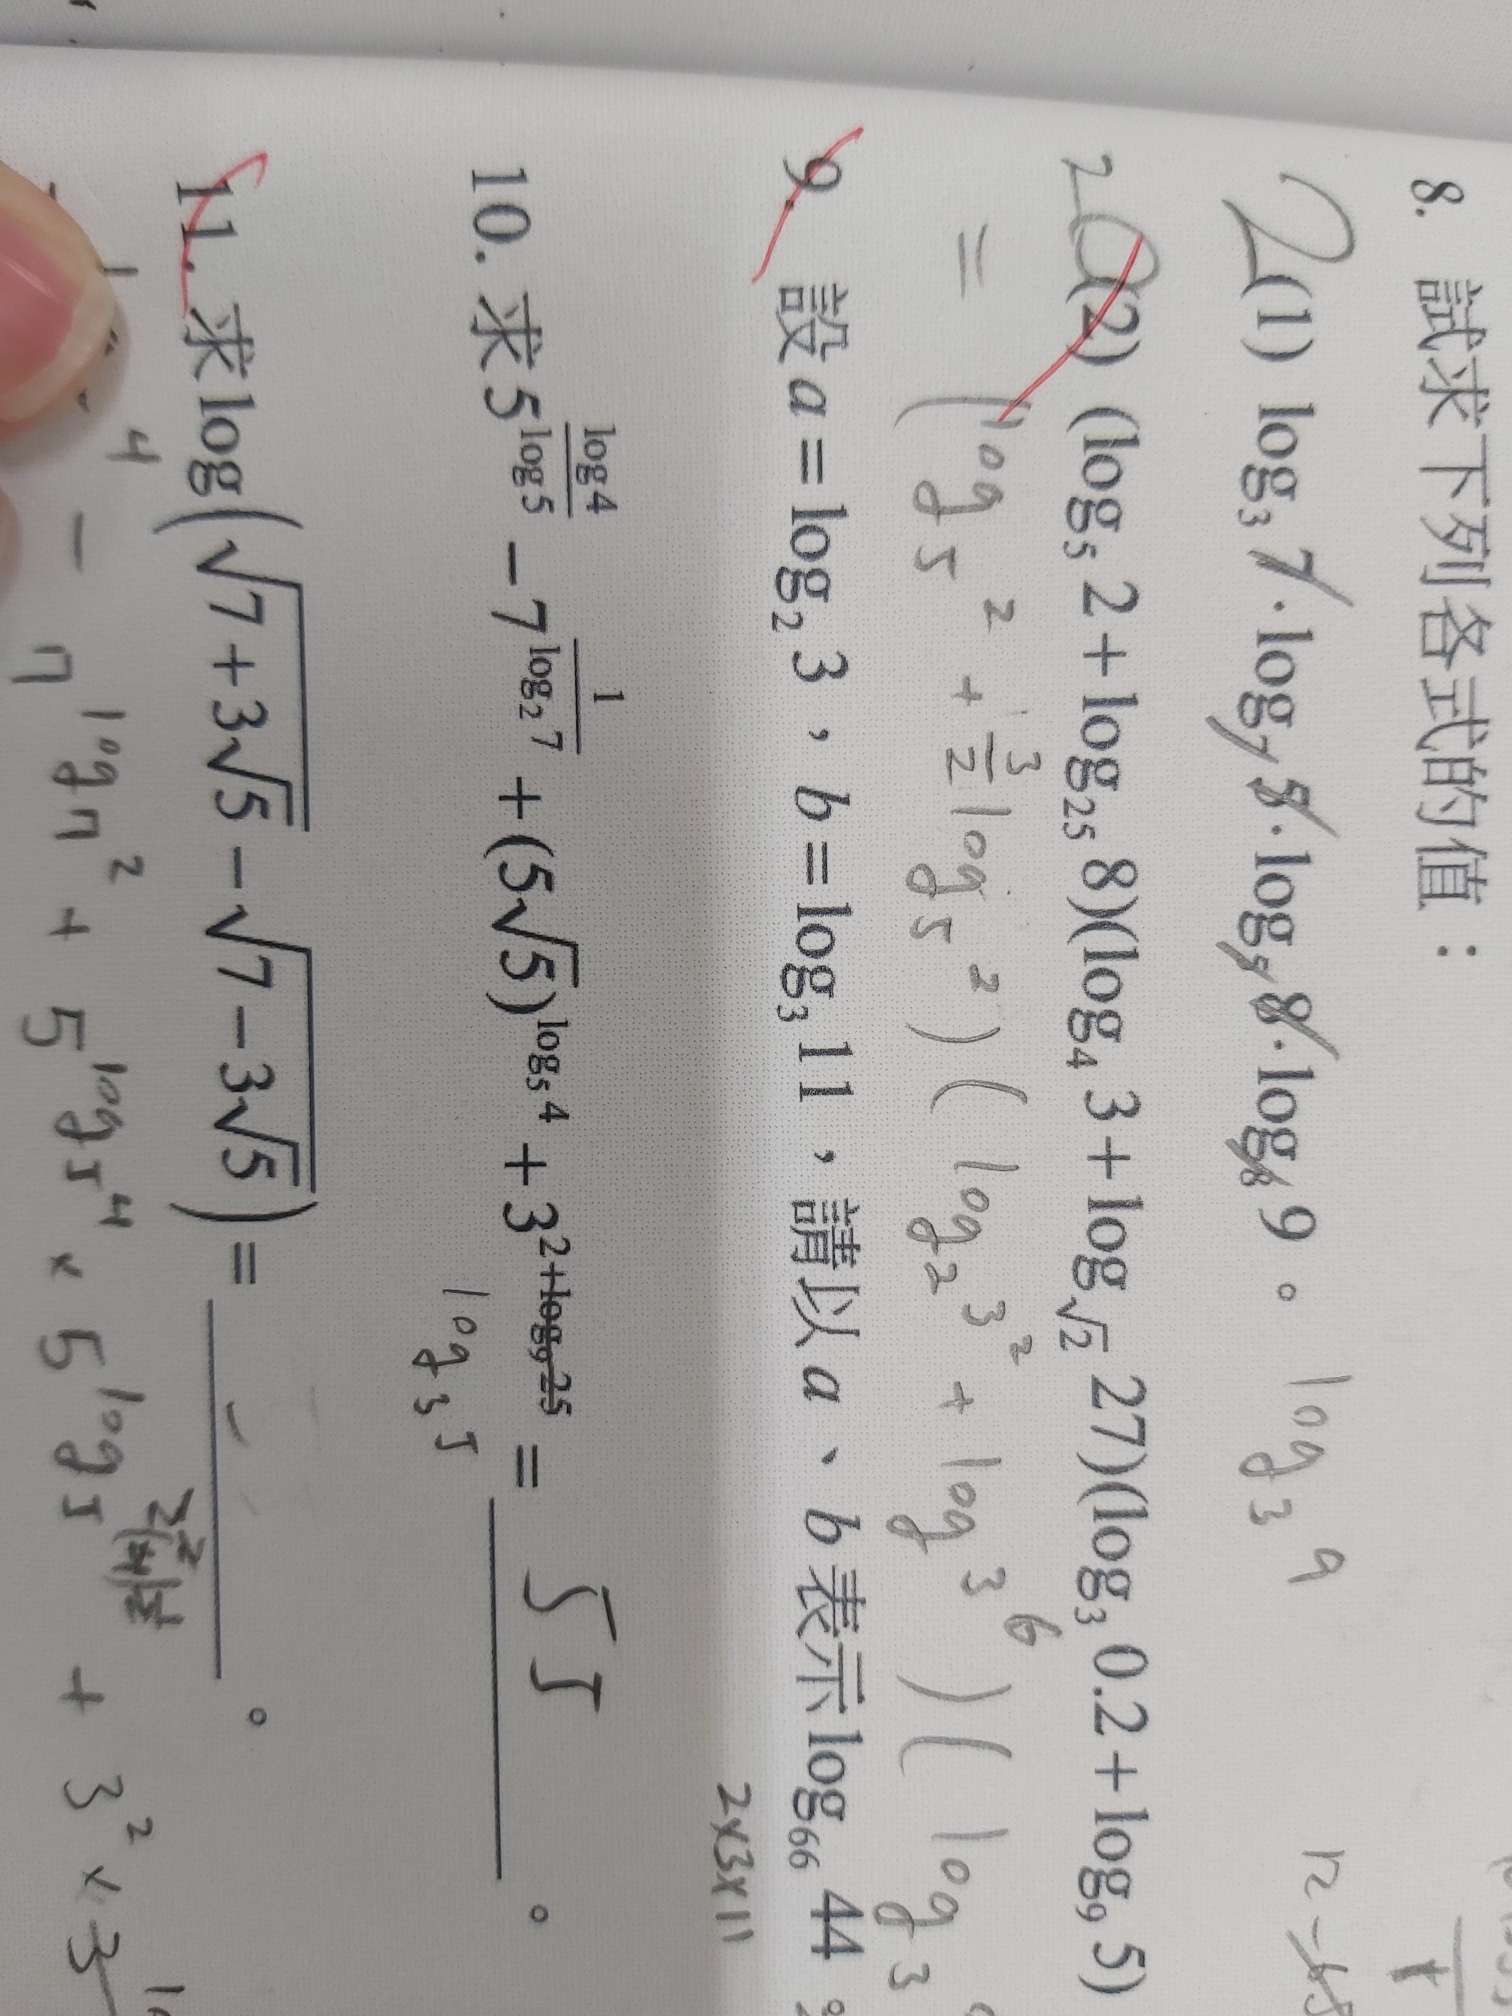 8. 試求下列各式的值：
2 (1) log₃ 7 · log₇ 5 · log₅ 8 · log₈ 9 。 log₃ 9
2 (2) (log₅ 2 + log₂₅ 8)(log₄ 3 + log_√2 27)(log₃ 0.2 + log₉ 5)
= (log₅ 2 + 3/2 log₅ 2)(log₂ 3² + log 3⁶)(log₃
9. 設 a = log₂ 3，b = log₃ 11，請以 a、b 表示 log₆₆ 44
2×3×11
10. 求 5^(log4/log5) − 7^(1/log₂7) + (5√5)^(log₅4) + 3^(2+log₉25) = ____ 。 55
log₃ 5
11. 求 log(√(7+3√5) − √(7−3√5)) = ____ 。
4 − 7^(log₇ 2) + 5^(log₅ 4) × 5^(log₅ + 3² × 3